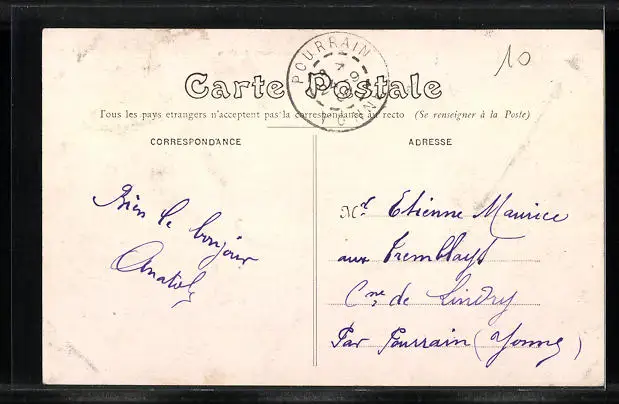 10
POURRAIN
YONNE
Carte Postale
Tous les pays etrangers n'acceptent pas la correspondance au recto (Se renseigner à la Poste)
CORRESPONDANCE
ADRESSE
Bien le bonjour
Anatole
Mr Etienne Maurice
aux Tremblays
Cne de Lindry
Par Pourrain (Yonne)